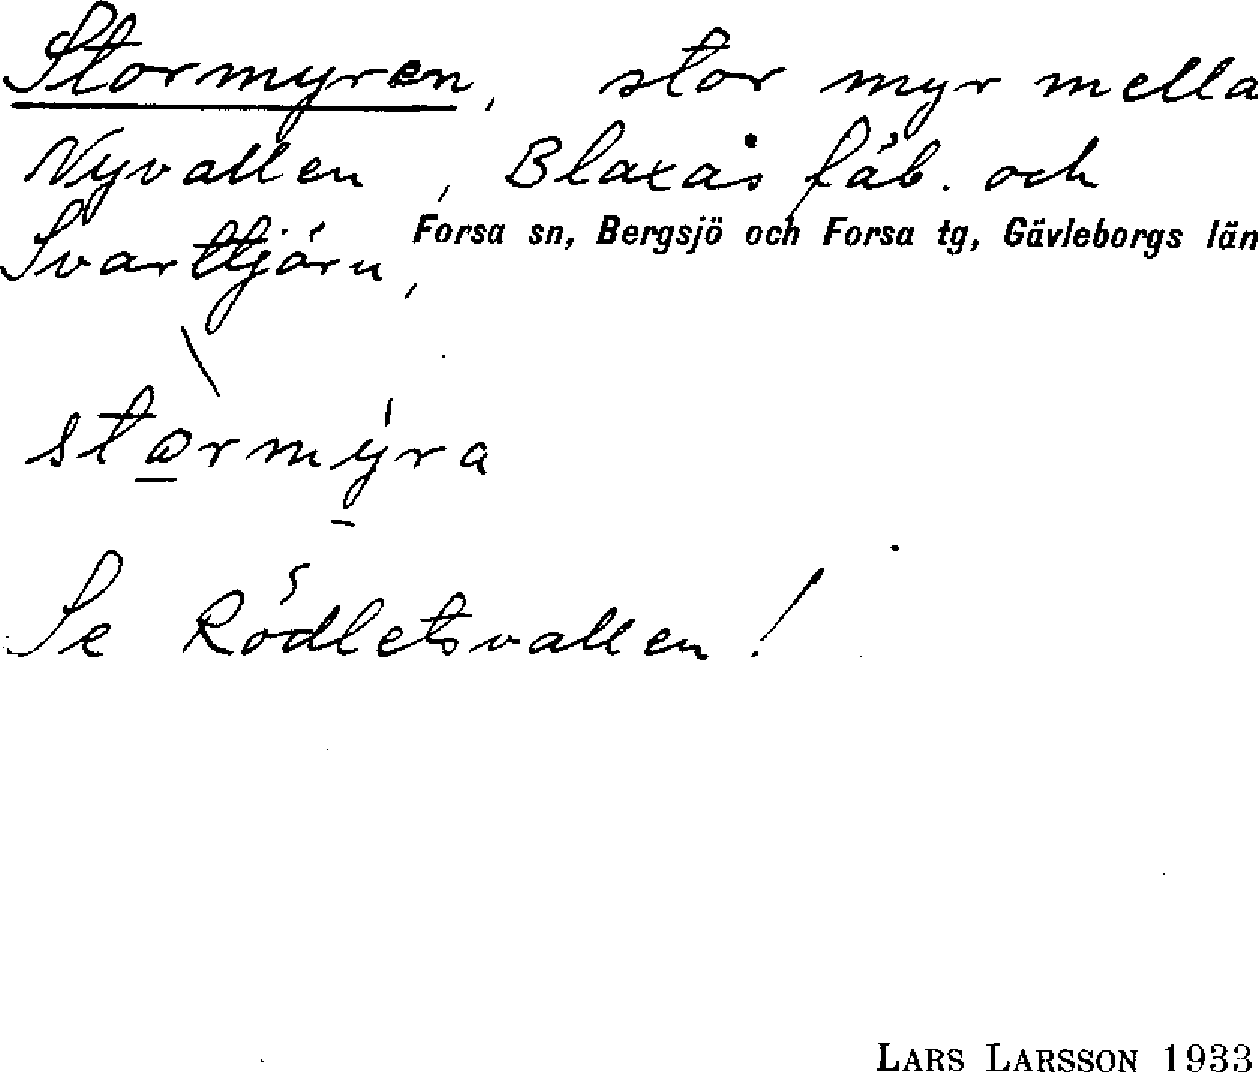 Stormyren, stor myr mella
Nyvallen, Blaxås fäb. och
Forsa sn, Bergsjö och Forsa tg, Gävleborgs län
Svarttjärn,
stormyra
Se Rödletsvallen!
LARS LARSSON 1933